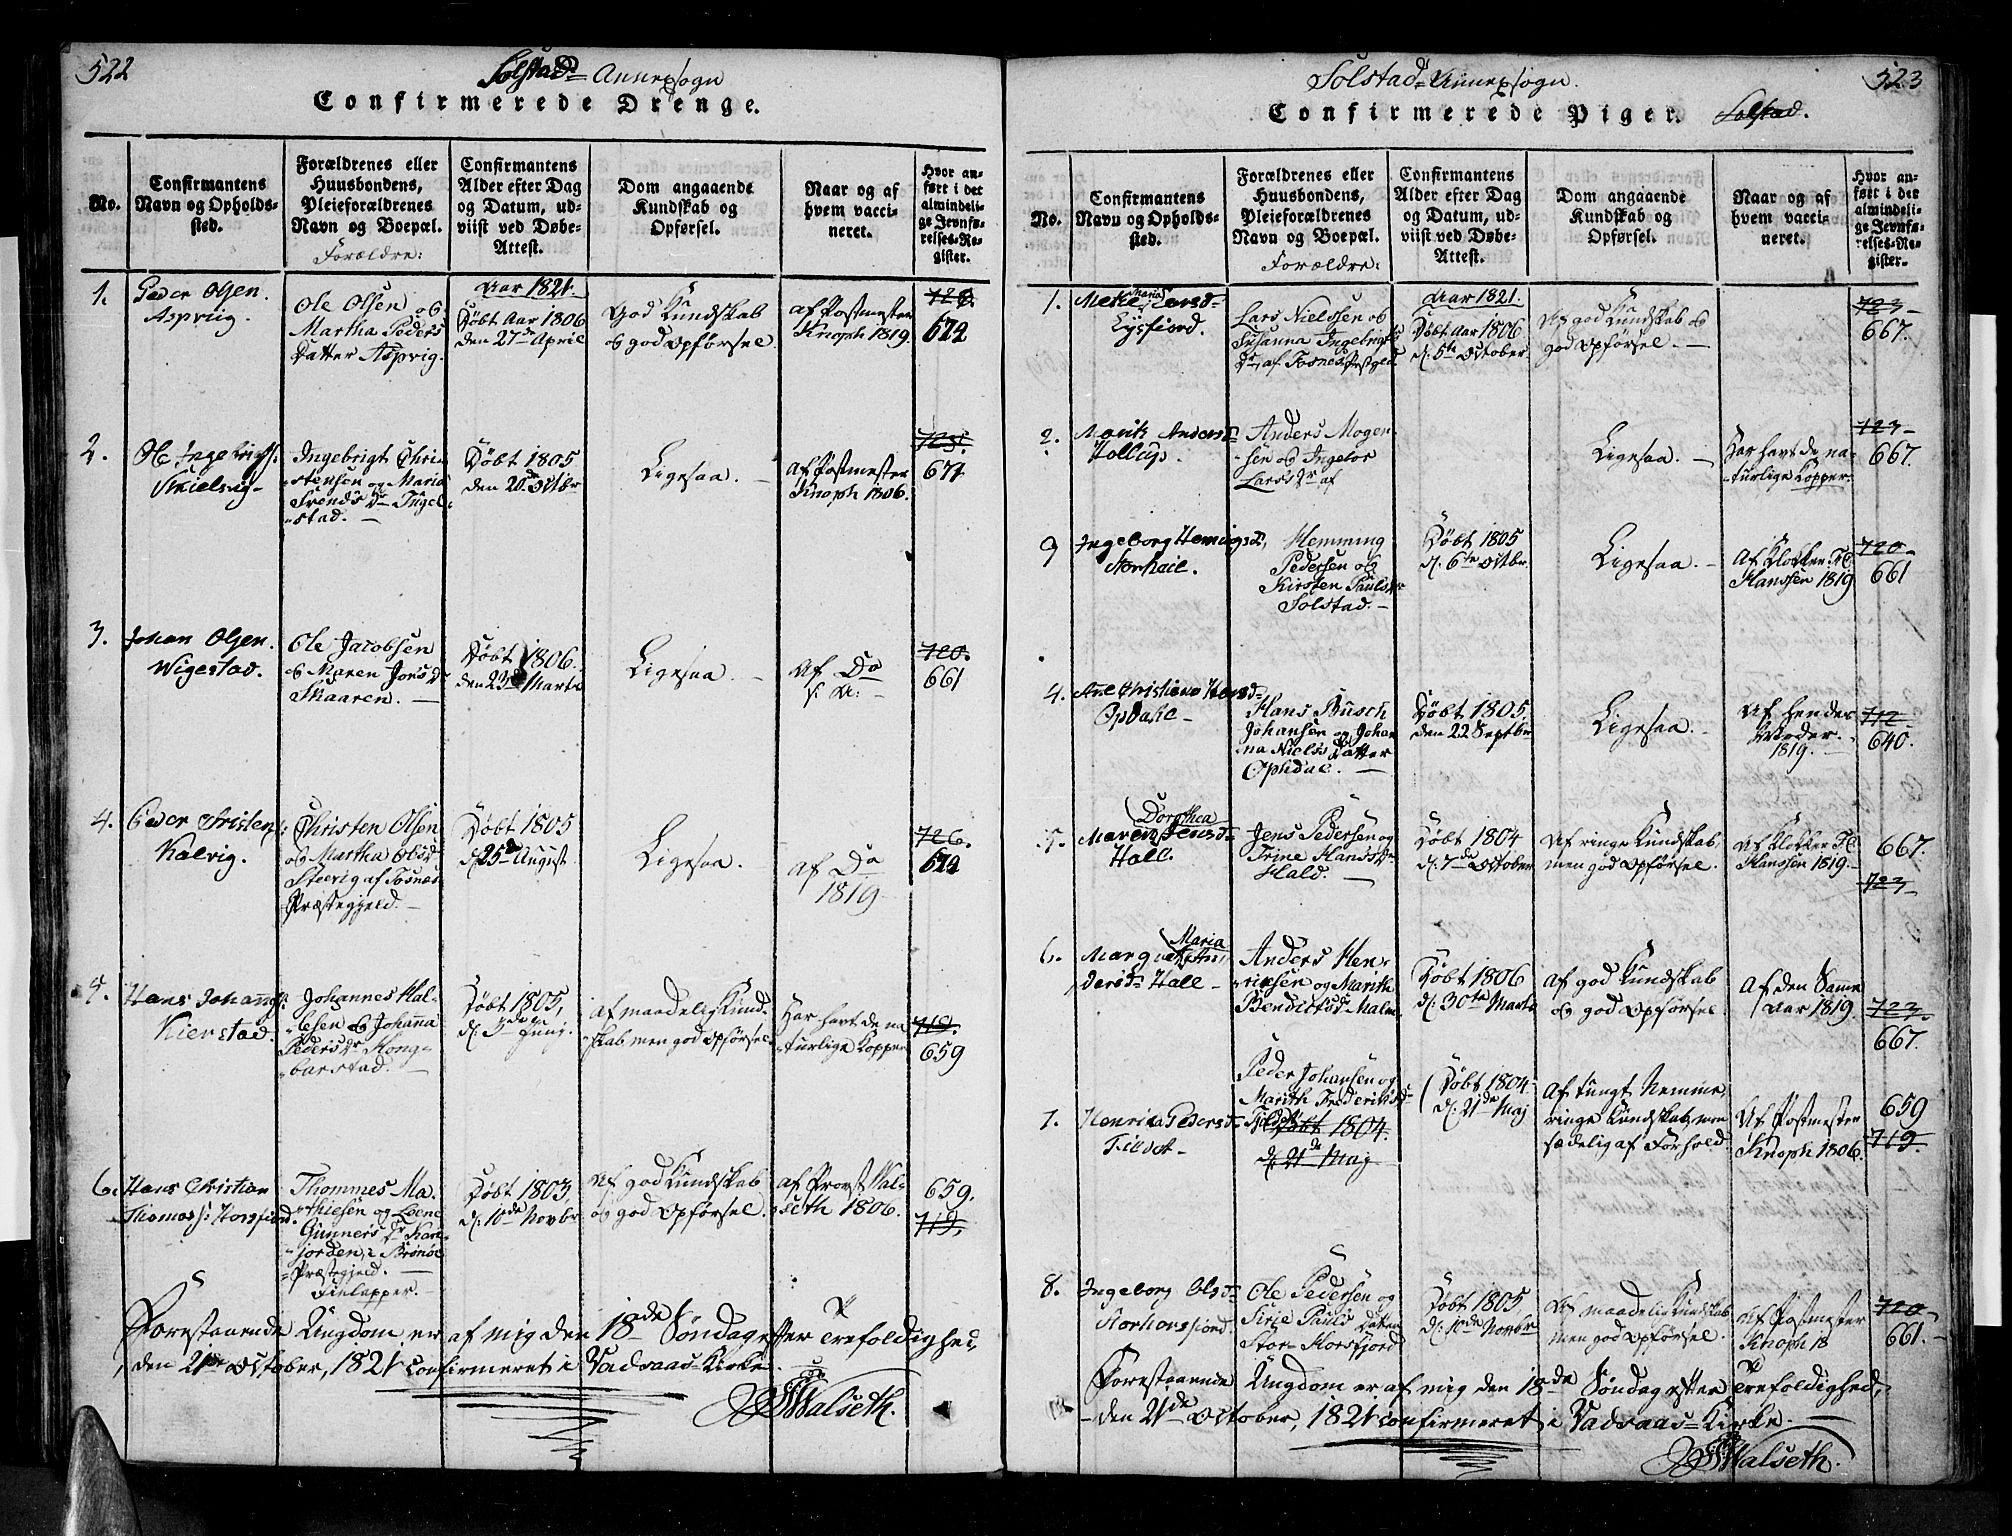 522
Solstad Annexsogn
Confirmerede Drenge.
No.
Confirmantens
Navn og Opholds-
sted.
Forældrenes eller
Huusbondens,
Pleieforældrenes
Navn og Boepæl.
Forældre:
Confirmantens
Alder efter Dag
og Datum, ud-
viist ved Døbe-
Attest.
Dom angaaende
Kundskab og
Opførsel.
Naar og af
hvem vacci-
neret.
Hvor an-
ført i det
almindeli-
ge Jevnfø-
relses-Re-
gister.
1.
Peder Olsen.
Aspviig.
Ole Olsen og
Martha Peders
Datter Aspvig.
Aar 1821.
Døbt Aar 1806
den 27de April
God Kundskab
og god Opførsel.
af Postmester
Knoph 1819.
2.
Ole Ingebrigts:
Skielvig
Ingebrigt Chri
stensen og Maria
Trends Dr Ingel
stad.
Døbt 1805
den 20de Octbr
Ligesaa.
Af Postmester
Knoph 1806.
3.
Johan Olsen.
Wigestad.
Ole Jacobsen
og Maren Jons Dr
Skaaren.
Døbt 1806.
den 23de Marti
Ligesaa
Af Do
720.
661
4.
Peder Cristens:
Kalvig.
Christen Olsen
og Martha Olsd
af Fosnæs
Præstegjeld.
Døbt 1805
d. 25de August
Ligesaa.
af Do
1819
726.
Hans Johans:
Kierstad.
Johannes Hal-
og Johanna
Peders Dr Kong-
barstad.
Døbt 1805,
d. 5de Junj.
af maadelig Kund-
skab men god Opførsel.
Har havt de na
turlige Kopper
719.
659
6.
Hans Christian
Thomass: Horsfiord.
Thommes Ma-
thiesen og Lene
Gunners Dr
jorden, i Brønøe
Præstegjeld.
Finlapper.
Døbt 1803,
d. 10de Novbr
af god Kundskab
og god Opførsel.
af Provst Wal-
seth 1806.
659.
719.
Forestaaende Ungdom er af mig den 18de Søndag efter Trefoldighed,
den 21de October, 1821 confirmeret i Vadsaas-Kirke.
Walseth.
523
Solstad Annexsogn.
Confirmerede Piger. Solstad.
No.
Confirmantens
Navn og Opholds-
sted.
Forældrenes eller
Huusbondens,
Pleieforældrenes
Navn og Boepæl.
Forældre:
Confirmantens
Alder efter Dag
og Datum, ud-
viist ved Døbe-
Attest.
Dom angaaende
Kundskab og
Opførsel.
Naar og af
hvem vacci-
neret.
Hvor an-
ført i det
almindeli-
ge Jevnfø-
relses-Re-
gister.
1.
Maria
Larsd
Eysfiord.
Lars Nielssen og
Susanna Ingebrigts
Dr, af Fosnes Prestgield
Aar 1821.
Døbt Aar 1806
d. 5te October
Af god Kundskab og
god Opførsel.
723
667.
2.
Marit Andersd
Hollup.
Anders Mogen
sen og Ingebor
Lars Dr af
Ligesaa.
Har havt de na-
turlige Kopper.
723
667.
Ingeborg Hemingsd,
Hemming
Pedersen og
Kirsten Pauls Dr
Solstad.
Døbt 1805
d. 6te Octbr.
Ligesaa.
Af Klokker
Hanssen 1819
720
661
4.
Ane Christiana Hansd
Opdahl
Hans Busch
Johansen og Johan
na Niels Datter
Ophdal.
Døbt 1805.
den 22 Septbr
Ligesaa.
Af hendes
Moder.
1819.
712.
640.
Dorothea
Maren Jensd
Hall.
Jens Pedersen og
Trine Hans Dr
Hald.
Døbt 1804
d. 7de October
Af ringe Kundskab
men god Opførsel.
Af Klokker
Hanssen 1819.
667.
723
6.
Maria
An
dersd Hall
Anders Hen
richsen og Marith
Bendicts Dr Malm
Døbt 1806
d. 30te Marts
Af god Kundskab
og god Opførsel.
Af den Samme
Aar 1819.
723.
667.
7.
Henrika Pedersd
Tieldet
Peder Johansen og
Marith Frederiks Dr
Døbt 1804.
d. 21de Maj
Døbt 1804.
d. 21de Maj
Af tungt Nemme,
ringe Kundskab, men
sædelig af Forhold.
Af Postmester
Knoph 1806.
659
719.
8.
Ingeborg Olsd
Ole Pedersen og
Sirie Pauls Datter
Stor-Horsfjord
Døbt 1805,
d. 10de Novbr
Af maadelig Kundskab
men god Opførsel.
af Postmester
Knoph 18
720
661.
Forestaaende Ungdom er af mig den 18de Søndag efter Trefoldighed,
den 21de October, 1821 confirmeret i Vadsaas-Kirke.
Walseth.